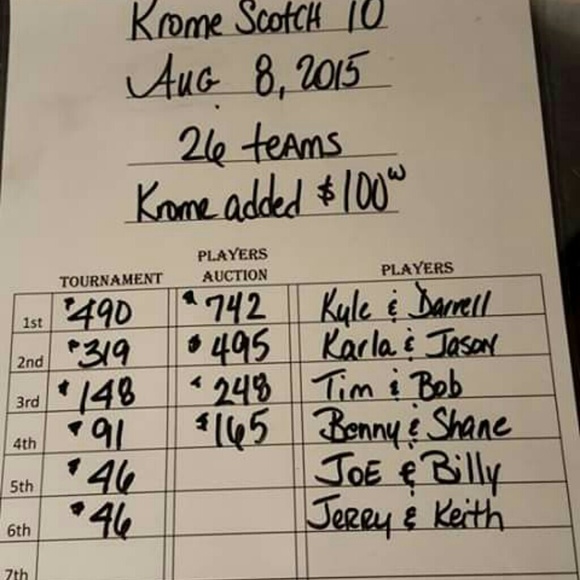 Krome Scotch 10
Aug 8, 2015
26 teams
Krome added $100°°
PLAYERS
TOURNAMENT AUCTION PLAYERS
1st $490 $742 Kyle & Darrell
2nd $319 $495 Karla & Jason
3rd $148 $248 Tim & Bob
4th $91 $165 Benny & Shane
5th $46 Joe & Billy
6th $46 Jerry & Keith
7th